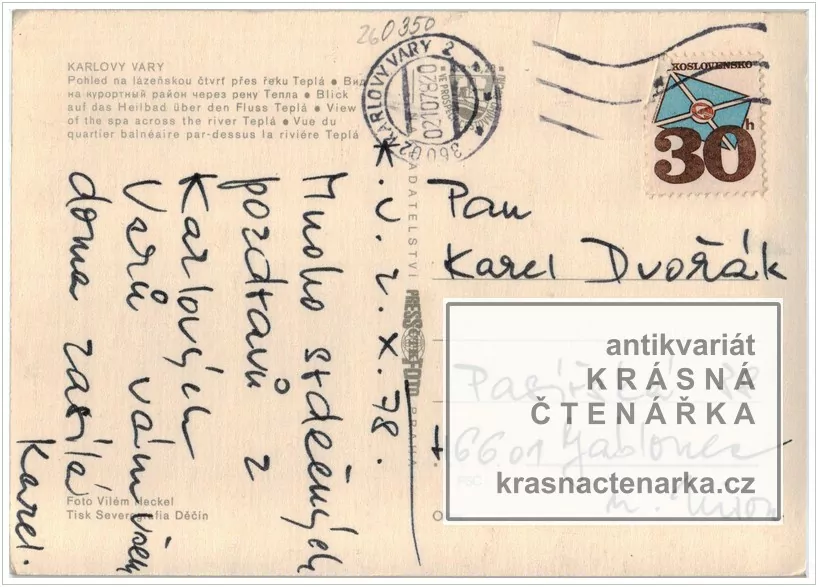 260350
KARLOVY VARY
Pohled na lázeňskou čtvrť přes řeku Teplá ● Вид
на курортный район через рену Тепла ● Blick
auf das Heilbad über den Fluss Teplá ● View
of the spa across the river Teplá ● Vue du
quartier balnéaire par-dessus la riviére Teplá
KARLOVY VARY 2
360 02
ČESKOSLOVENSKO
30h
K.V. 2.X.78.
Mnoho srdečných
pozdravů z
Karlových
Varů vám všem
doma zasílá
Karel.
NAKLADATELSTVÍ
PRESSFOTO
PRAHA
Pan
Karel Dvořák
antikvariát
KRÁSNÁ
ČTENÁŘKA
46601 Jablonec
PSČ
krasnactenarka.cz
n. Nisou
Foto Vilém Heckel
Tisk Severografia Děčín